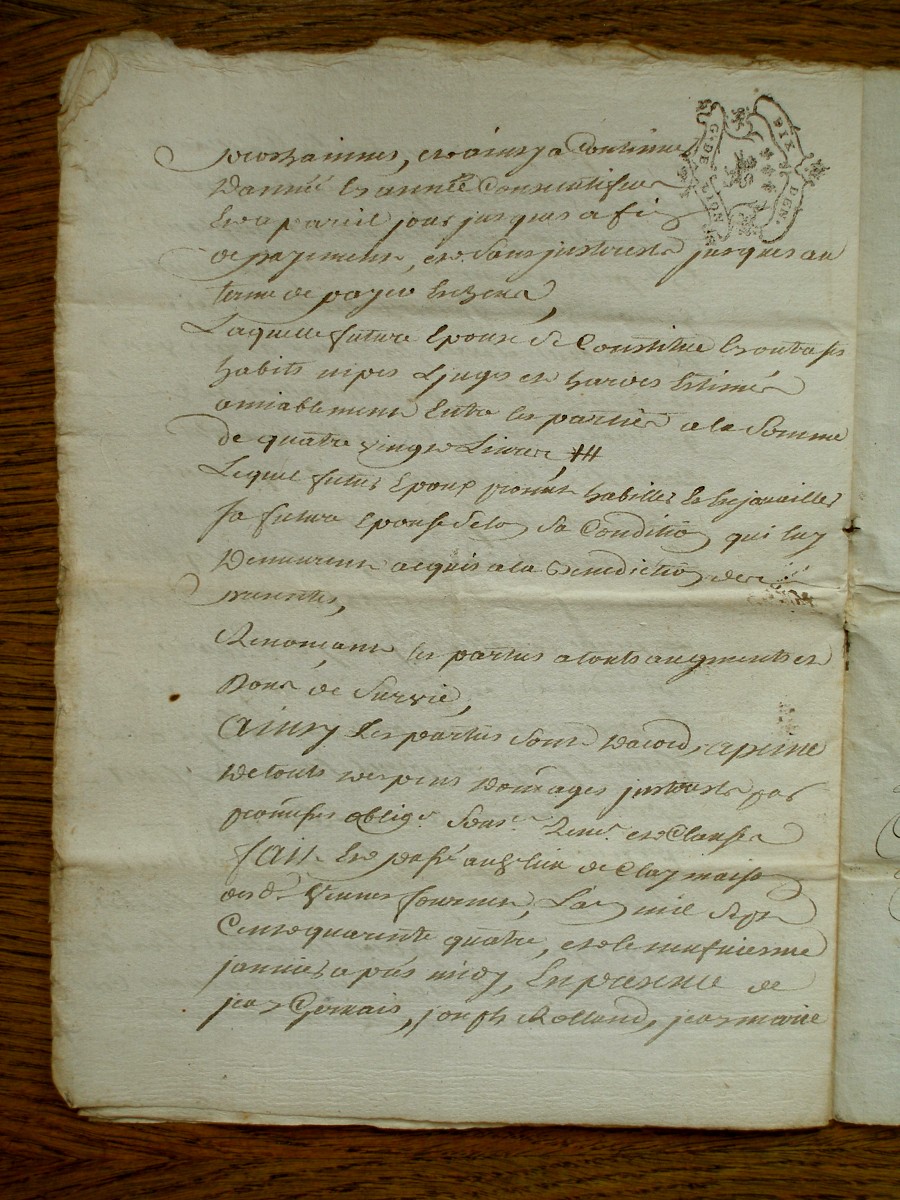 prochainnes, et ainsy a Continuer
D'année En année Consecutifve
Et a pareil jour jusques a fin
de payement, et Sans jnterest jusques au
terme de payer Escheus,
Laquelle future Epouse Se Constitue En outre ses
habits nipes Linges et hardes Estimés
amiablement Entre les parties a la Somme
de quatre vingt Livres
Lequel futur Epoux promet habiller Et Enjoüailler
sa future Epouse Selon Sa Condition qui luy
Demeurent acquis a la Benediction des
presentes,
Renoncant les parties a touts augments et
Dons de Survie,
Ainsy Les parties Sont D'acord, a peine
De touts Despens Domages jnterests par
promesses oblig.ˢ Sous.ˢ Renon.ˢ et Clauses
fait Et passé au lieu de Clay maison
dud.ᵗ fournier, L'an mil Sept
Cent quarente quatre, et le neufviesme
janvier apres midy, En presence de
jean Gervais, joseph Rolland, jean marie
G. DE LION
DIX DEN.